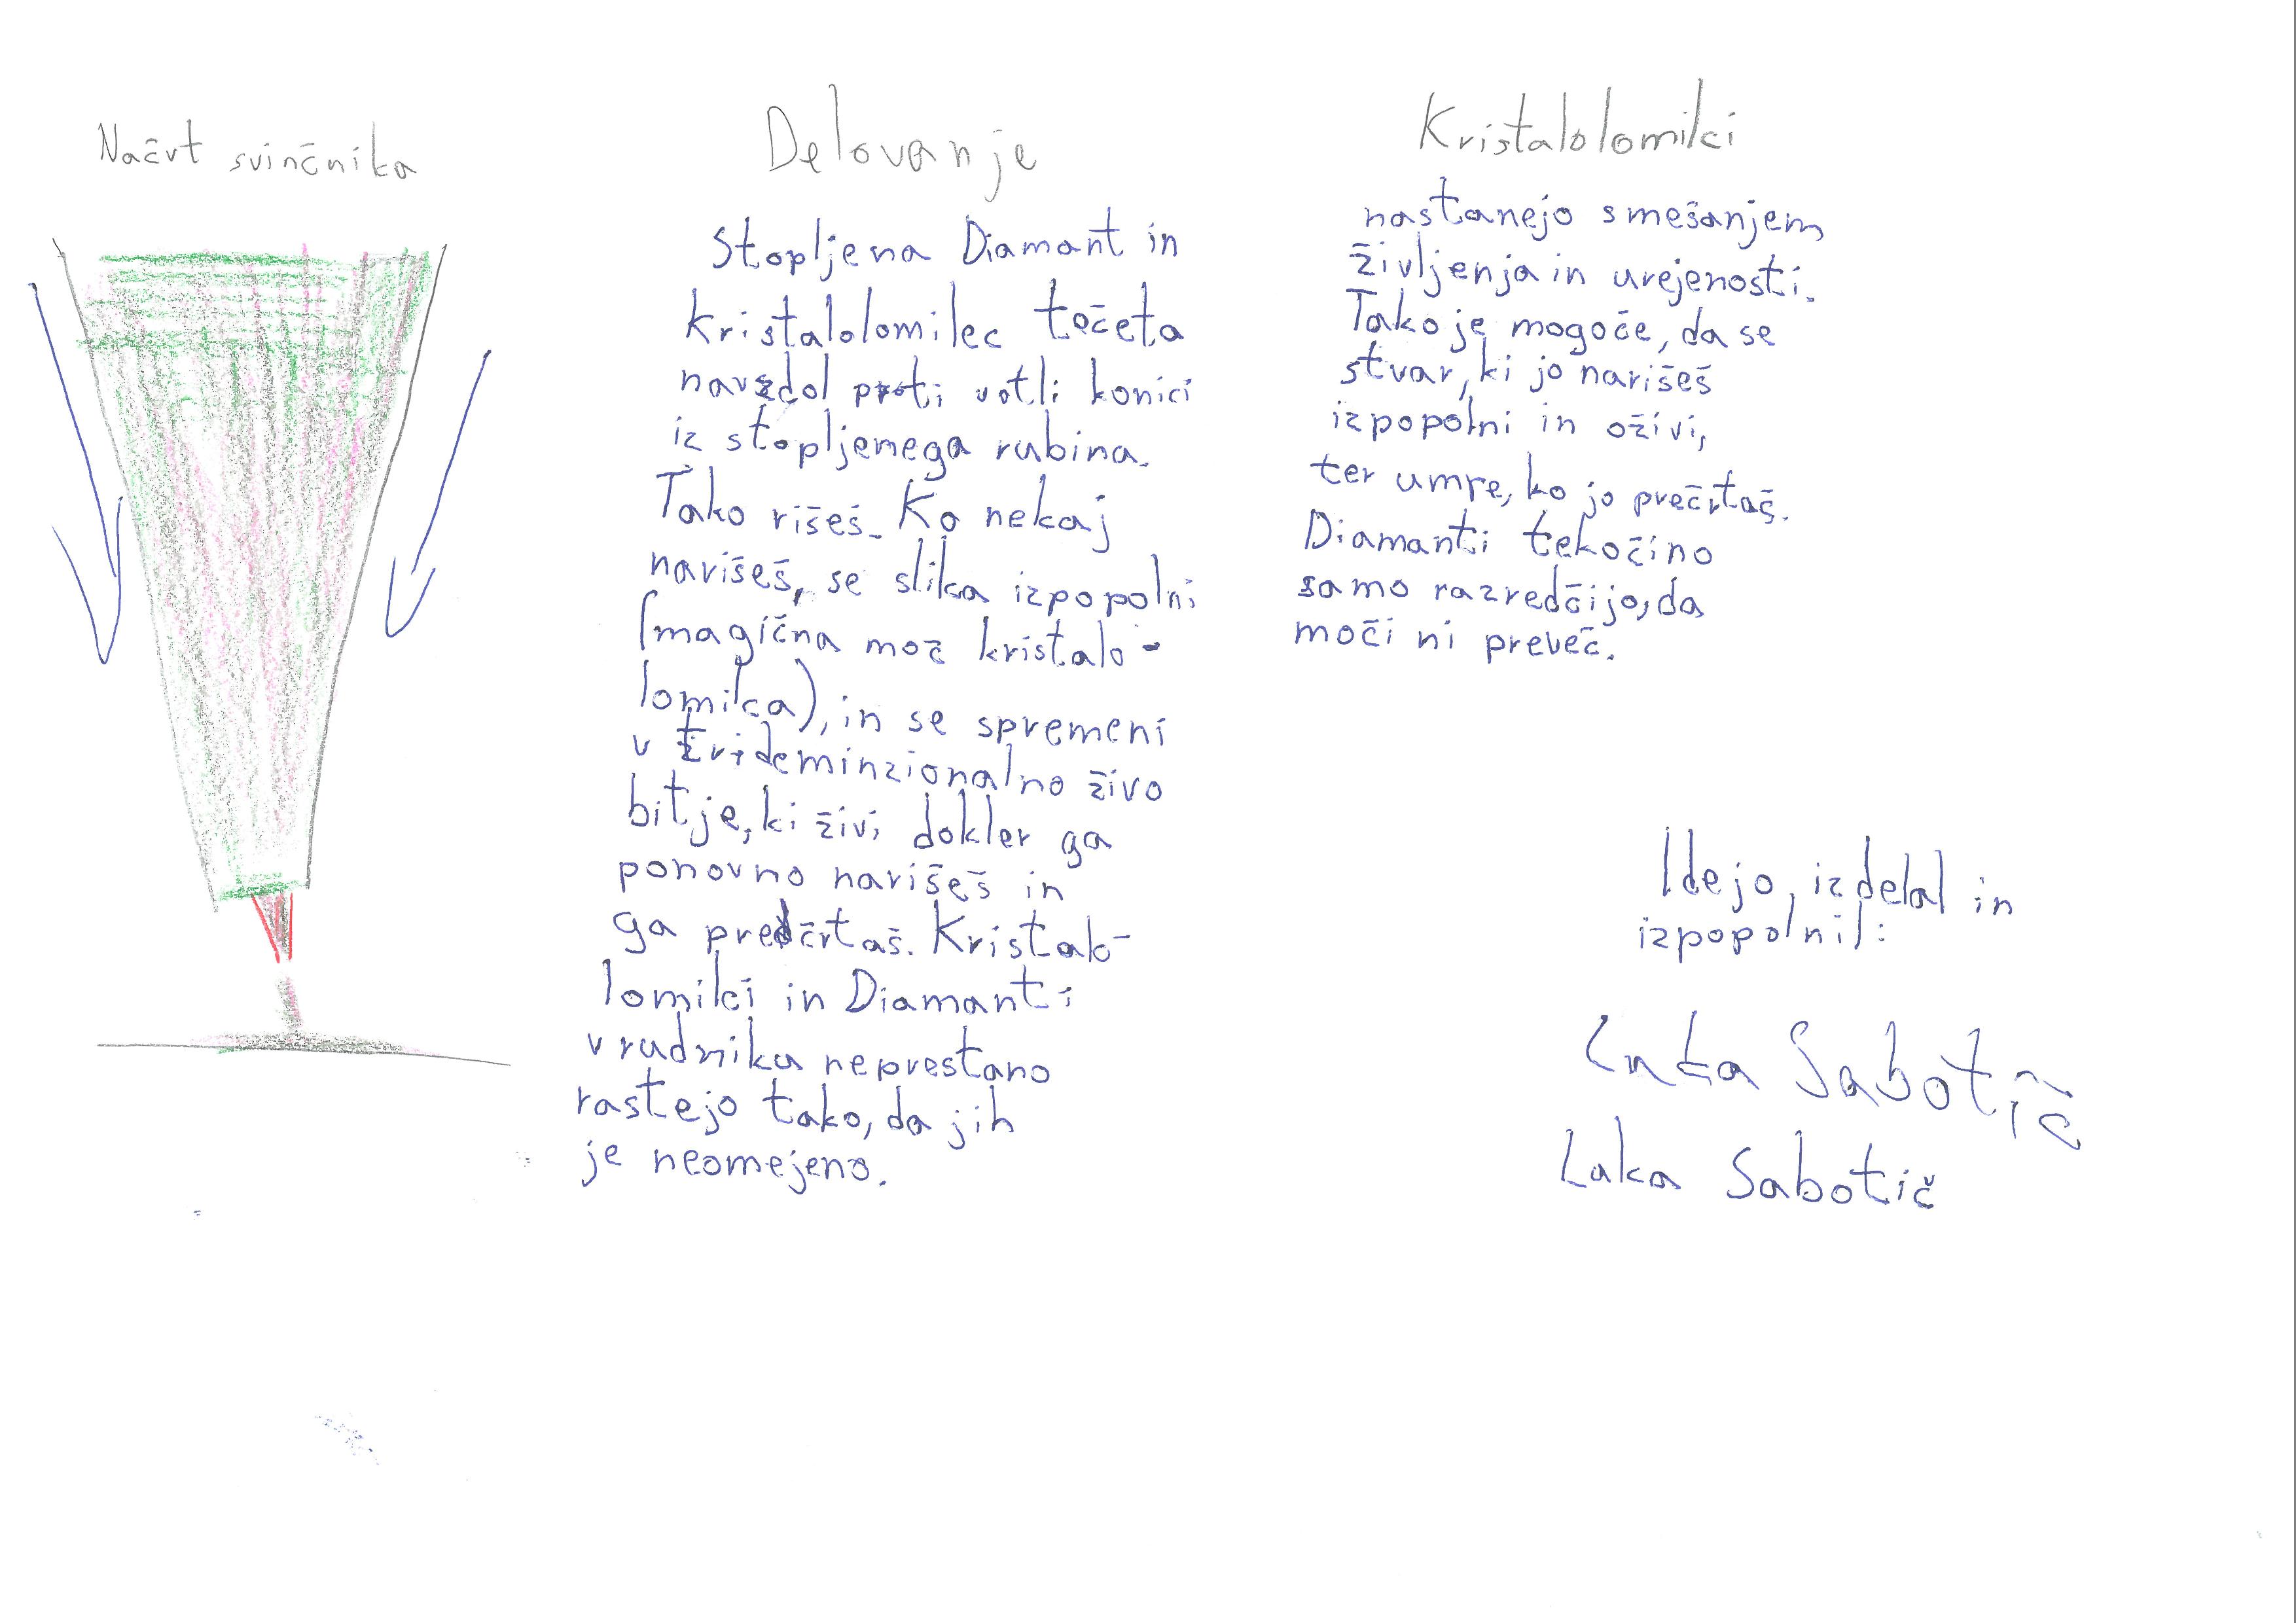 Načrt svinčnika
Delovanje
Stopljena Diamant in
kristalolomilec tečeta
navzdol proti votli konici
iz stopljenega rubina.
Tako rišeš. Ko nekaj
narišeš, se slika izpopolni
(magična moč kristalo-
lomilca), in se spremeni
v trideminzionalno živo
bitje, ki živi dokler ga
ponovno narišeš in
ga prečrtaš. Kristalo-
lomilci in Diamanti
v rudniku neprestano
rastejo tako, da jih
je neomejeno.
Kristalolomilci
nastanejo smešanjem
življenja in urejenosti.
Tako je mogoče, da se
stvar, ki jo narišeš
izpopolni in oživi,
ter umre, ko jo prečrtaš.
Diamanti tekočino
samo razredčijo, da
moči ni preveč.
Idejo, izdelal in
izpopolnil:
Luka Sabotič
Luka Sabotič